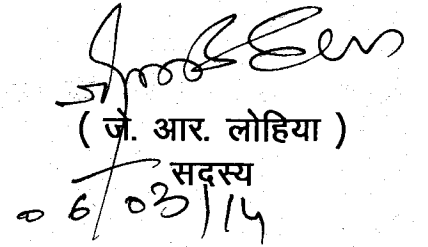 ( जे. आर. लोहिया )
सदस्य
06/03/14